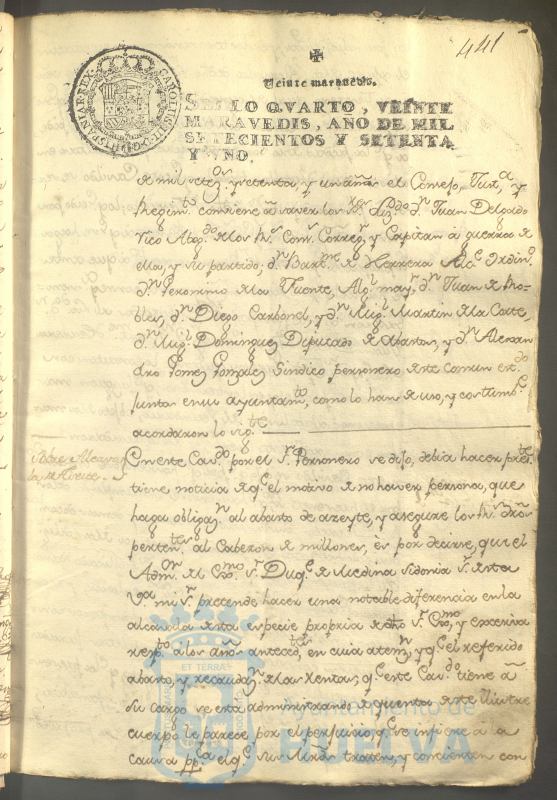 441
Veinte maravedis.
SELLO QVARTO, VEINTE
MARAVEDIS, AÑO DE MIL
SETECIENTOS Y SETENTA
Y VNO.
CAROLUS III D G HISPANIAR REX
de mil setez.os y setenta, y un años el Consejo, Just.a y
Regim.to conviene a saver los S.res Liz.do d.n Juan Delgado
Vico Abog.do de los R.s Cons.s Correg.r y Capitan à guerra de
ella, y su partido; d.n Bart.me de Herrera Alc.e Ordin.o
d.n Geronimo de la Fuente, Alg.l may.r d.n Juan de Ro-
bles, d.n Diego Carbonel, y d.n Mig.l Martin de la Corte,
d.n Mig.l Dominguez Diputado de Abastos, y d.n Alexan-
dro Gomez Gonzalez Sindico personero de este Comun est.do
juntos en su ayuntam.to, como lo han de uso, y costumb.e
acordaron lo sig.te
Sobre Alcavala
de Aceite
En este Cav.do por el s.r Personero se dijo, debia hacer pres.te
tiene noticia de q.e el motivo de no haver persona, que
haga obligaz.n al abasto de azeyte, y asegure los R.s dros
pertten.tes al Cabezon de millones, es por decirse, que el
Adm.or del Exmo. s.r Duq.e de Medina Sidonia s.r de esta
V.a mi s.r pretende hacer una notable diferencia en la
alcavala de esta especie propria de dho s.r Exmo. y excesiva
resp.to a los años anteced.tes, en cuia atenz.n y q.e el referido
abasto, y recaudaz.n de las Rentas; q.e este Cav.do tiene a
su cargo se esta administrando de quenta de este Ilustre
cuerpo le parece por el perjuicio, q.e se infiere a la
causa pp.ca el q.e sus Mrds. traten, y concierten con
Ayuntamiento de
HUELVA